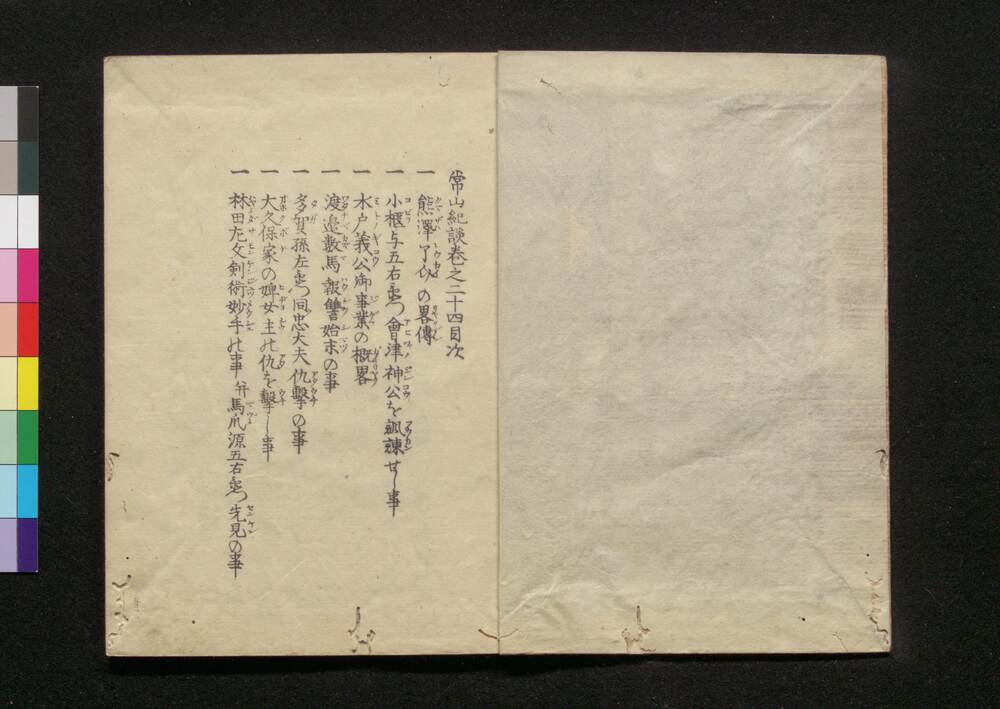 常山紀談巻之二十四目次
一 熊澤了介の畧傳
一 小櫃与五右衛門會津神公を諷諫せし事
一 水戸義公御事業の概畧
一 渡邉數馬報讐始末の事
一 多賀孫左衛門同忠大夫仇撃の事
一 大久保家の婢女主の仇を撃し事
一 林田左文剣術妙手の事 并馬爪源五右衛門先見の事